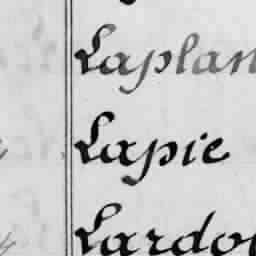 Laplan
Lapie
Lardo